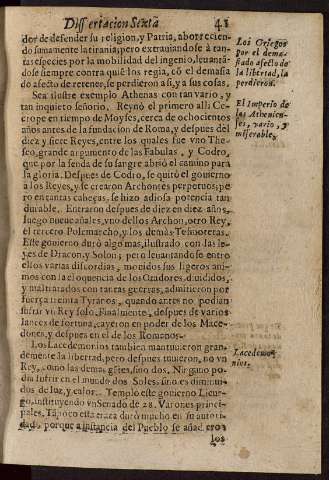 Dissertacion Sexta 41
dor de defender su religion, y Patria, aborrecien-
do sumamente la tirania; pero extraviandose à tan-
tas especies por la mobilidad del ingenio, levantã-
dose siempre contra quiẽ los regia, cõ el demasia
do afecto de retener, se perdieron a si, y a sus cosas.
Sea ilustre exemplo Athenas con tan vario, y
tan inquieto señorio. Reynò el primero alli Ce-
crope en tiempo de Moyses, cerca de ochocientos
años antes de la fundacion de Roma, y despues del
diez y siete Reyes, entre los quales fue vno The-
seo, grande argumento de las Fabulas, y Codro,
que por la senda de su sangre abriò el camino para
la gloria. Despues de Codro, se quitò el govierno
a los Reyes, y se crearon Archontes perpetuos; pe
ro en tantas cabeças, se hizo adiosa potencia tan
durable. Entraron despues de diez en diez años,
luego nueve anales, vno de los Archon, otro Rey,
el tercero Polemarcho, y los demàs Tesmotetas.
Este govierno durò algo mas, ilustrado con las le-
yes de Dracon, y Solon; pero levantandose entre
ellos varias discordias, movidos sus ligeros ani-
mos con la eloquencia de los Oradores, divididos,
y maltratados con tantas guerras, admitieron por
fuerça treinta Tyranos, quando antes no podian
sufrir vn Rey solo. Finalmente, despues de varios
lances de fortuna, cayeron en poder de los Mace-
dones, y despues en el de los Romanos.
Los Lacedemonios tambien mantuvieron gran-
demente la libertad, pero despues tuvieron, no vn
Rey, como las demàs gẽtes, sino dos. Ninguno po-
dia sufrir en el mundo dos Soles, sino es diminui-
dos de luz, y calor. Templò este govierno Licur-
go, instituyendo vn Senado de 28. Varones princi-
pales. Tãpoco esta traza durò mucho en su autori-
dad, porque a instancia del Pueblo se añadieron
los
Los Griegos
por el dema-
siado afecto de
la libertad, la
perdieron.
El Imperio de
los Athenien-
ses, vario, y
miserable.
Lacedemo-
nios.